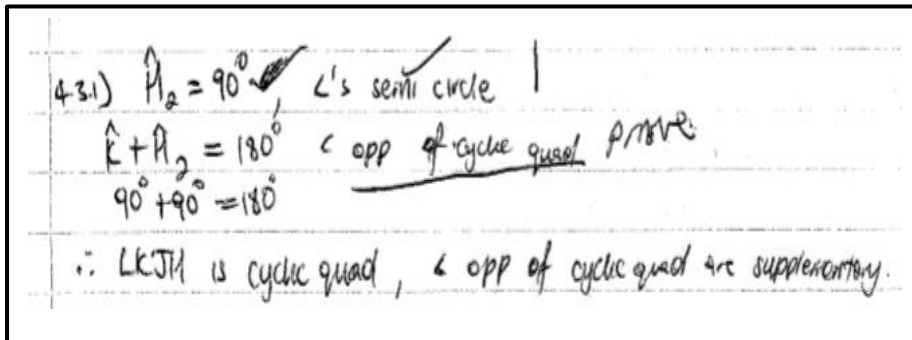 4.3.1) Ĥ₂ = 90°, <'s semi circle 1
K̂ + Ĥ₂ = 180° < opp of cyclic quad prove
90° + 90° = 180°
∴ LKJH is cyclic quad, < opp of cyclic quad are supplementary.